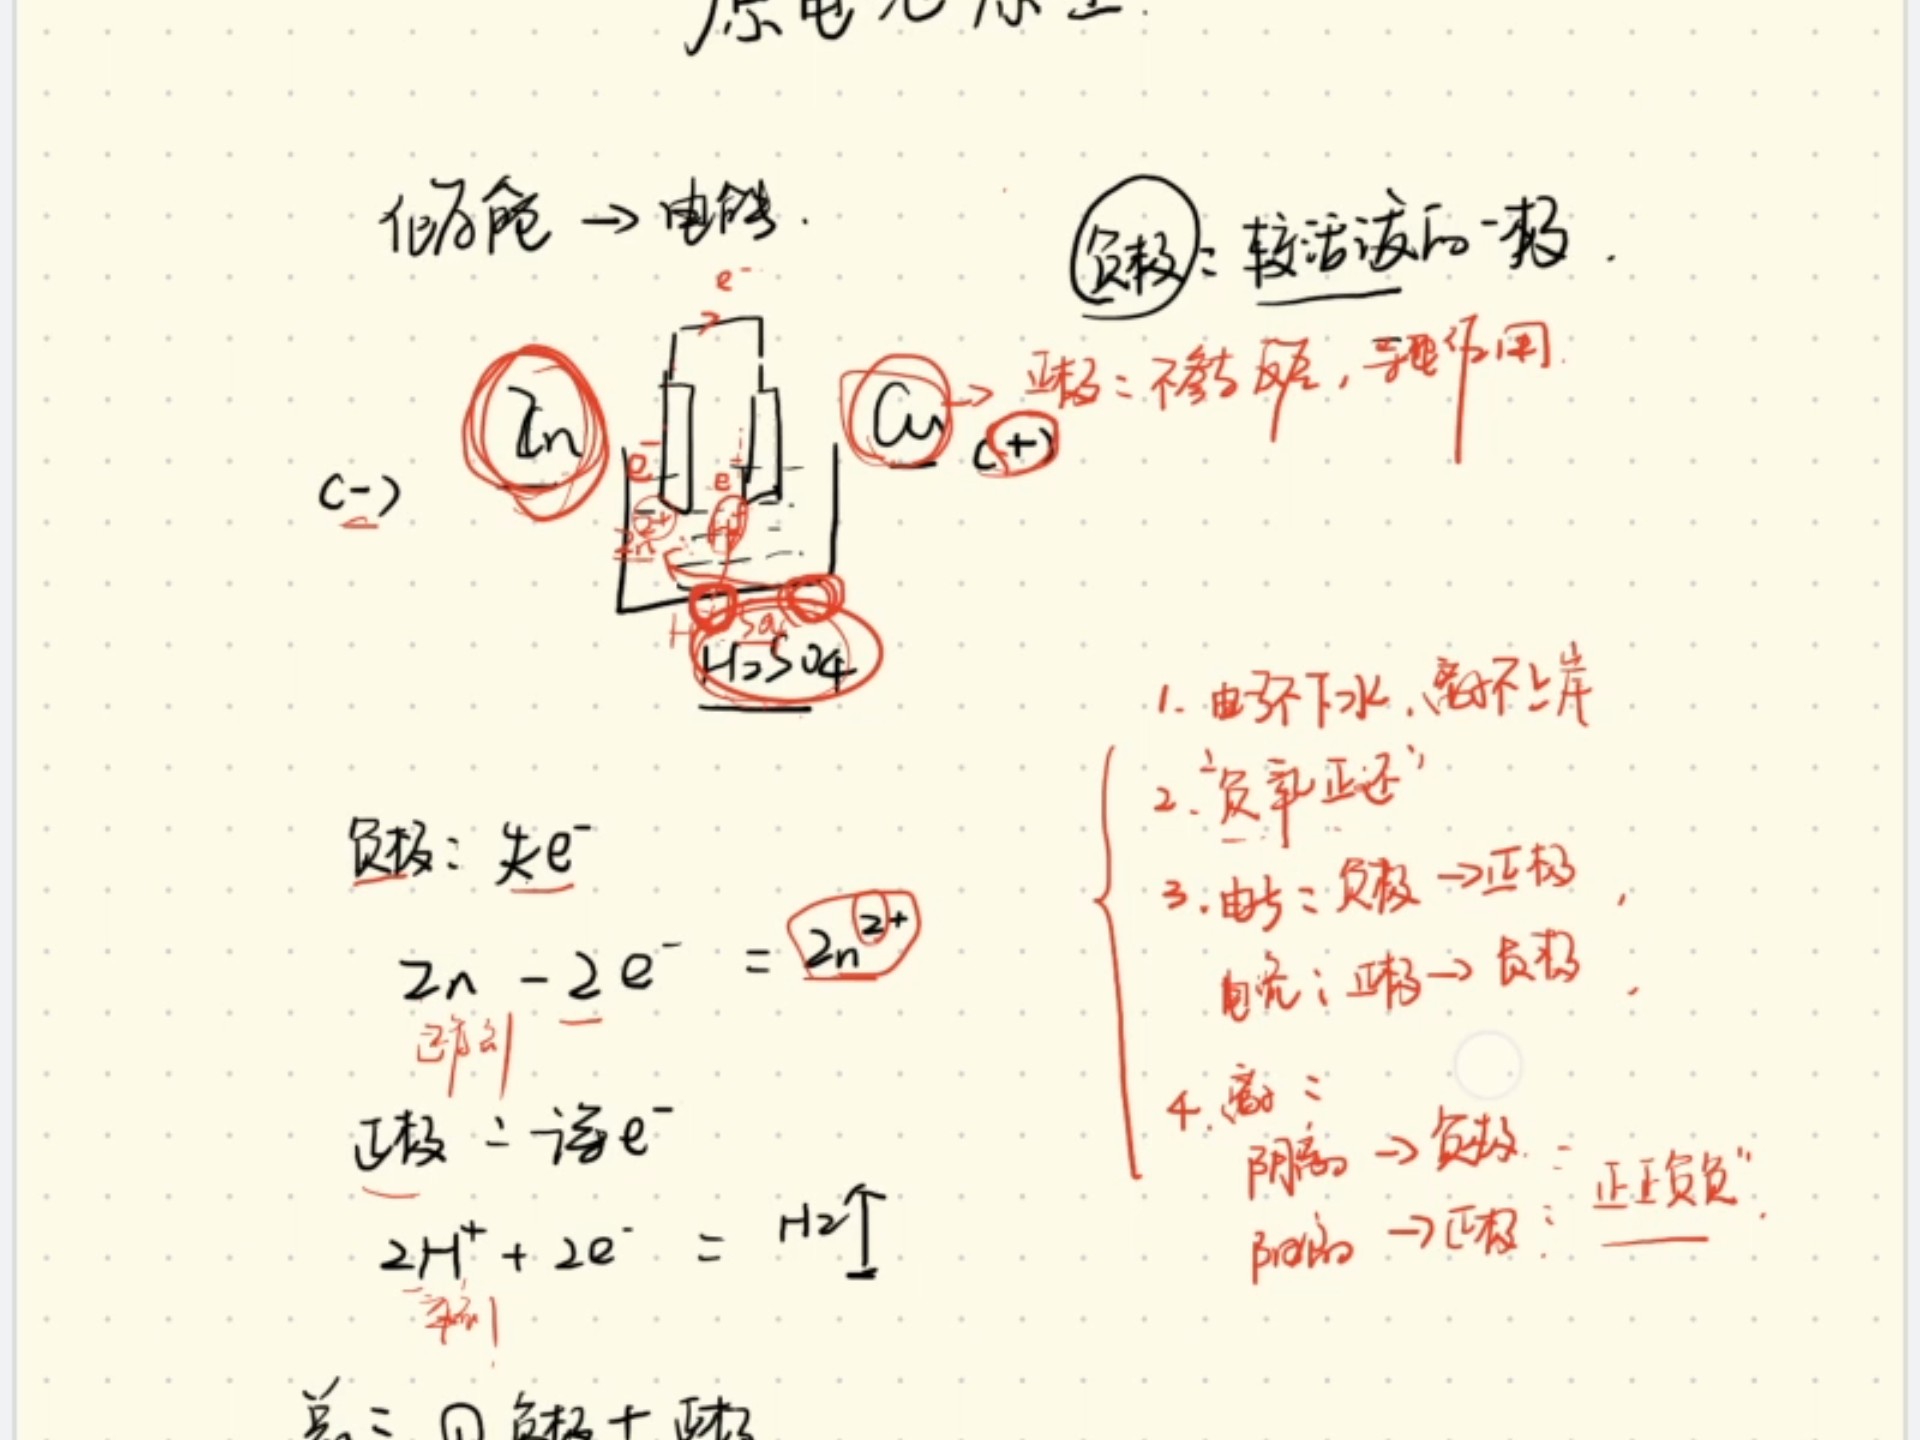 原电池原理.
化学能 → 电能.
负极: 较活泼的一极.
e⁻
Zn
Cu → 正极: 不参与反应, 导电作用.
(-)
(+)
e⁻
e⁻
Zn²⁺
H⁺
H₂SO₄
1. 电子不下水, 离子不上岸
2. "负氧正还"
3. 电子: 负极 → 正极,
电流: 正极 → 负极.
4. 离子:
阴离子 → 负极.
阳离子 → 正极: "正正负负".
负极: 失e⁻
Zn - 2e⁻ = Zn²⁺
还原剂
正极: 得e⁻
2H⁺ + 2e⁻ = H₂↑
氧化剂
总: ① 负极 + 正极